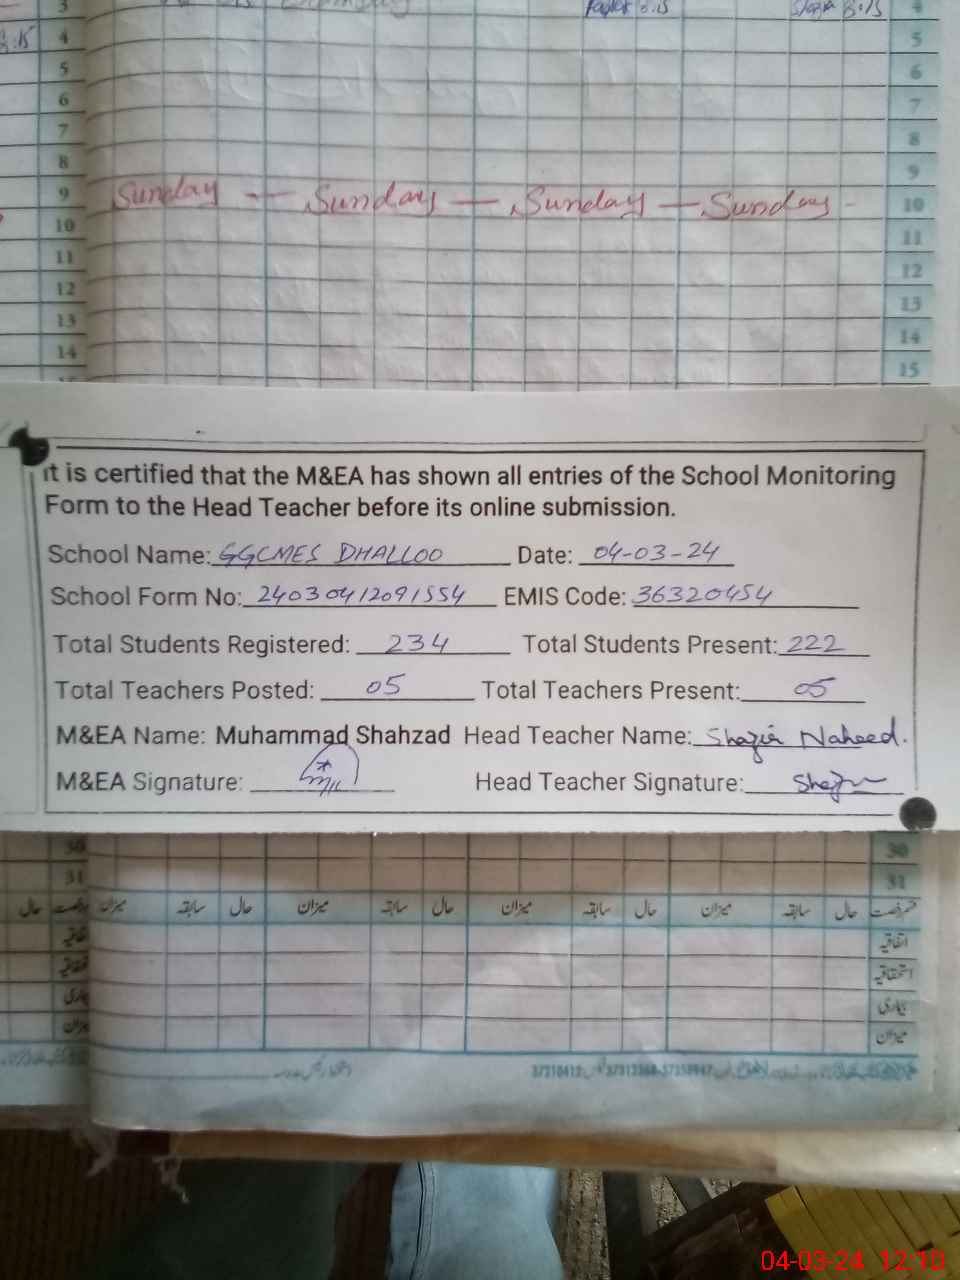 3
8:15 4 5
5 6
6 7
7 8
8 9
9 Sunday — Sunday — Sunday — Sunday - 10
10 11
11 12
12 13
13 14
14 15
It is certified that the M&EA has shown all entries of the School Monitoring
Form to the Head Teacher before its online submission.
School Name: GGCMES DHALLOO Date: 04-03-24
School Form No: 24030412091554 EMIS Code: 36320454
Total Students Registered: 234 Total Students Present: 222
Total Teachers Posted: 05 Total Teachers Present: 05
M&EA Name: Muhammad Shahzad Head Teacher Name: Shazia Naheed.
M&EA Signature: Head Teacher Signature:
30 30
31 31
حال میزان سابقہ حال میزان سابقہ حال میزان سابقہ حال میزان سابقہ حال
اتفاقیہ
استحقاقیہ
بیماری
میزان
04-03-24 12:10